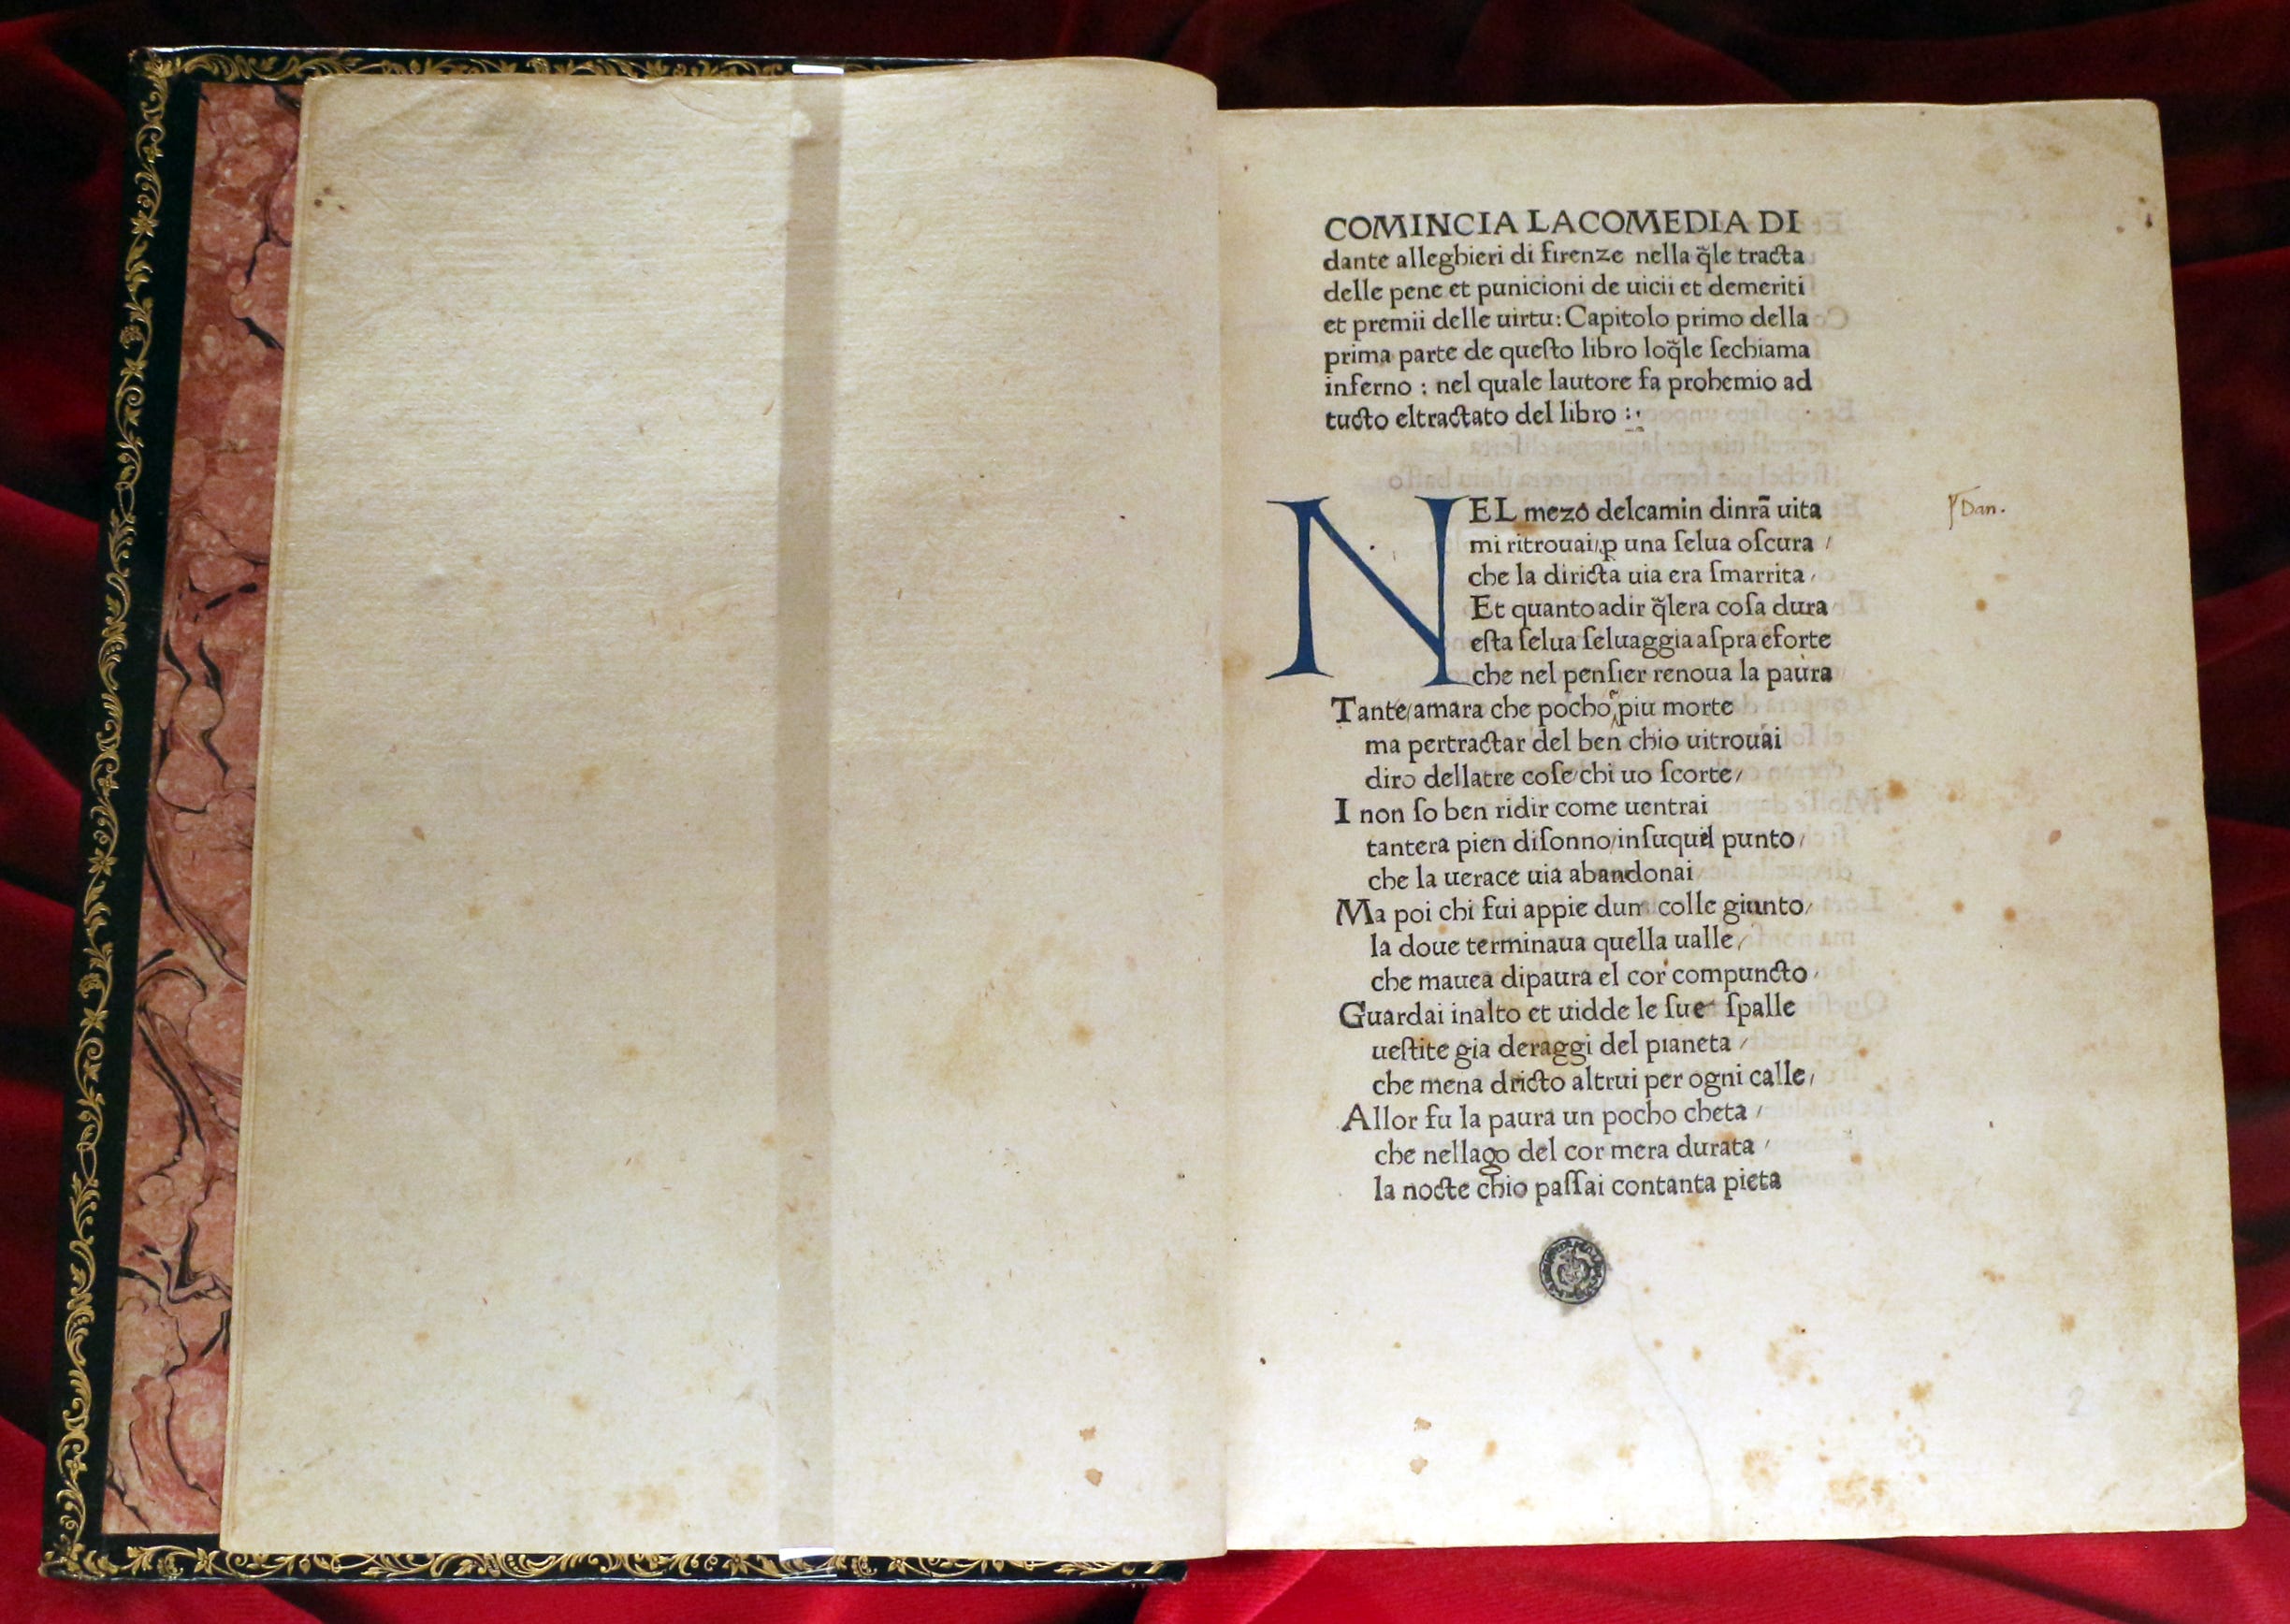 COMINCIA LACOMEDIA DI
dante alleghieri di firenze nella q̃le tracta
delle pene et punicioni de uicii et demeriti
et premii delle uirtu: Capitolo primo della
prima parte de queſto libro loq̃le ſechiama
inferno : nel quale lautore fa prohemio ad
tucto eltractato del libro :
NEL mezo delcamin dinrã uita
mi ritrouai ꝑ una ſelua oſcura /
che la diricta uia era ſmarrita /
Et quanto adir q̃lera coſa dura
eſta ſelua ſeluaggia aſpra eforte
che nel penſier renoua la paura
Tante/amara che pocho piu morte
ma pertractar del ben chio uitrouai
diro dellatre coſe/chi uo ſcorte /
I non ſo ben ridir come uentrai
tantera pien diſonno/inſuquel punto /
che la uerace uia abandonai
Ma poi chi fui appie dun colle giunto /
la doue terminaua quella ualle /
che mauea dipaura el cor compuncto /
Guardai inalto et uidde le ſue ſpalle
ueſtite gia deraggi del pianeta /
che mena dricto altrui per ogni calle /
Allor fu la paura un pocho cheta /
che nellago del cor mera durata /
la nocte chio paſſai contanta pieta
Dan.
2